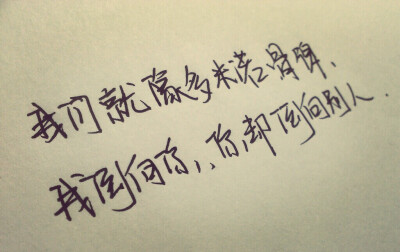 我们就像多米诺骨牌，
我倒向你，你却倒向别人．